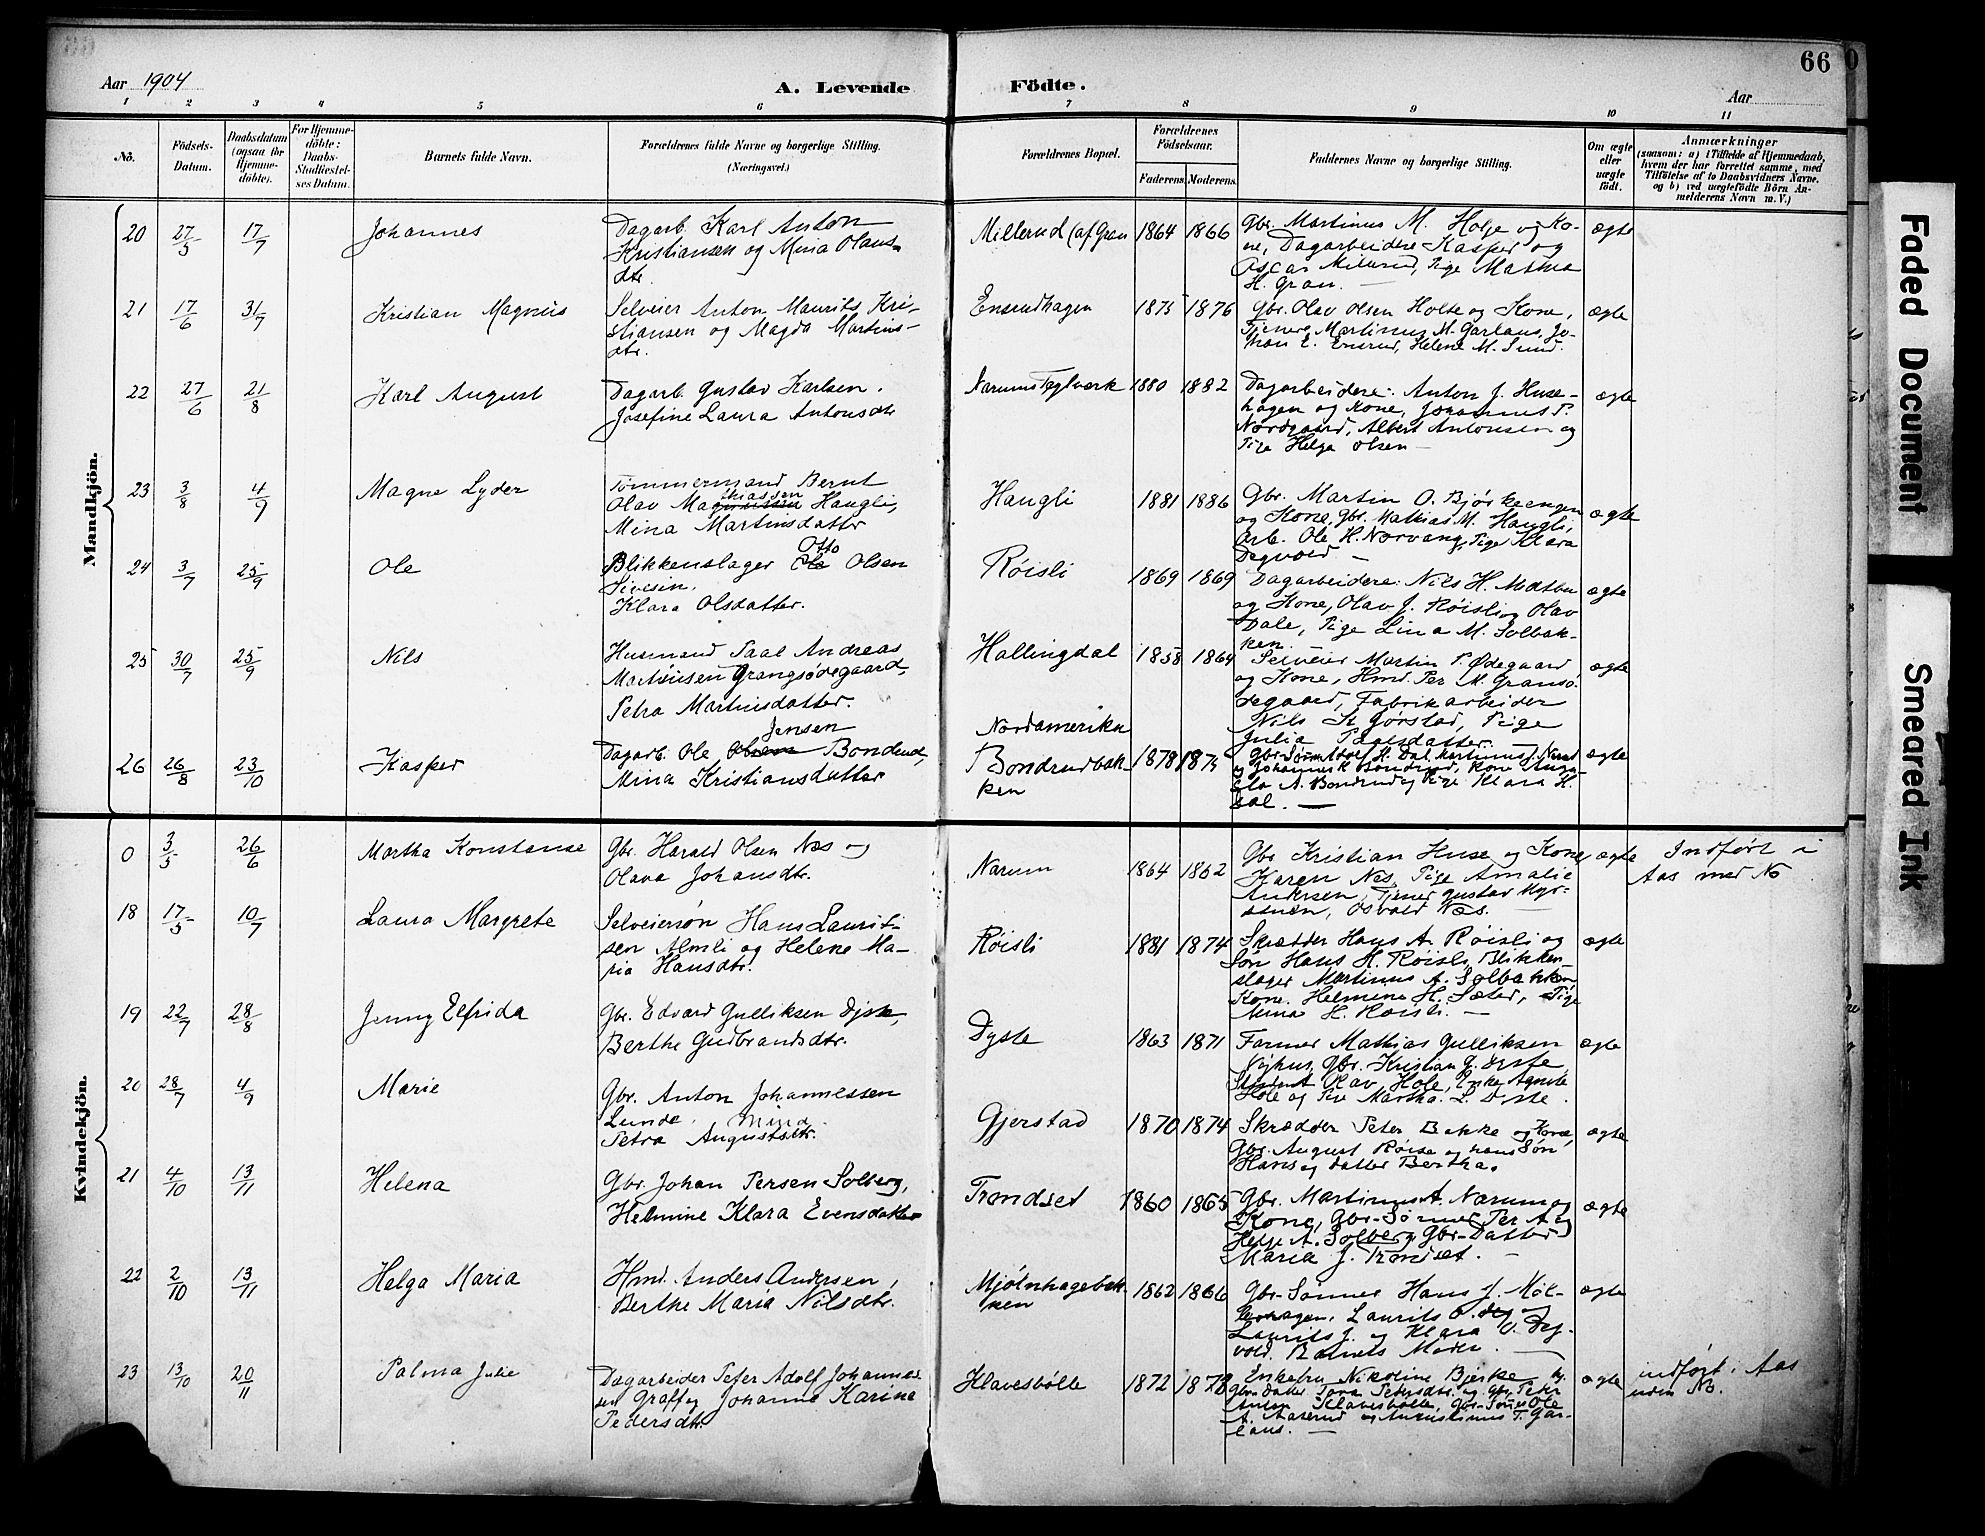 66
Aar 1904
A. Levende
Födte.
Aar
1 2 3 4 5 6 7 8 9 10 11
No.
Födsels-
Datum.
Daabsdatum
(ogsaa for
Hjemme-
döbte).
For Hjemme-
döbte:
Daabs-
Stadfæstel-
ses Datum.
Barnets fulde Navn.
Forældrenes fulde Navne og borgerlige Stilling.
(Næringsvei.)
Forældrenes Bopæl.
Forældrenes
Födselsaar.
Faderens. Moderens.
Faddernes Navne og borgerlige Stilling.
Om ægte
eller
uægte
født.
Anmærkninger
(saasom: a) i Tilfælde af Hjemmedaab,
hvem der har forrettet samme, med
Tilföielse af to Daabsvidners Navne.
og b) ved uægtefödte Börn An-
melderens Navn m. V.)
Mandkjön.
20 27/5 17/7 Johannes
Dagarb. Karl Anton
Kristiansen og Mina Olaus-
dtr.
Millerud (af Gran 1864 1866
Gbr. Martinus M. Holje og Ko-
ne, Dagarbeidere Kasper og
Oscar Millerud, Pige Mathea
H. Gran.
ægte
21 17/6 31/7 Kristian Magnus
Selveier Anton Maurits Kri-
stiansen og Magda Martins-
dtr.
Ensrudhagen 1875 1876
Gbr. Olav Olsen Holte og Kone,
Tjenere Martinus M. Garlaus, Jo-
han E. Ensrud, Helene M. Sund.
ægte
22 27/6 21/8 Karl August
Dagarb. Gustav Karlsen.
Josefine Laura Antonsdtr
Narums Teglverk 1880 1882
Dagarbeidere: Anton J. Huse-
hagen og Kone, Johannes P.
Nordgaard, Albert Antonsen og
Pige Helga Olsen
ægte
23 3/8 4/9 Magne Lyder
Tømmermand Bernt
Olav Mathiassen Haugli,
Mina Martinsdatter
Haugli 1881 1886
Gbr. Martin O. Bjørkeengen
og Kone, Gbr. Mathias M. Haugli,
Arb. Ole H. Norvang, Pige Klara
Degvold
ægte
24 3/7 25/9 Ole
Otto
Blikkenslager Ole Olsen
Sivesin.
Klara Olsdatter.
Røisli 1869 1869
Dagarbeidere: Nils H. Melbu
og Kone, Olav J. Røisli og Olav
Dale, Pige Lina M. Solbak-
ken.
ægte
25 30/7 25/9 Nils
Husmand Paal Andreas
Mathisen Grangsødegaard,
Petra Martinsdatter.
Hallingdal 1858 1864
Selveier Martin P. Ødegaard
og Kone, Hmd. Per M. Gransø-
degaard, Fabrikarbeider
Nils St. Gørstad, Pige
Julia Paalsdatter.
ægte
26 26/8 23/10 Kasper
Jensen
Dagarb. Ole Olsen Bondrud,
Mina Kristiansdatter
Nordamerika
Bondrudbak-
ken
1878 1875
og Johannes K. Bondrud, Kone
A. Bondrud og Pige Klara H.
Dal.
ægte
Kvindekjön.
0 3/5 26/6 Martha Konstanse
Gbr. Harald Olsen Næs og
Olava Johansdtr.
Narum 1864 1862
Gbr. Kristian Huse og Kone
Karen Næs, Pige Amalie
Andersen, Tjener Gustav Myr-
stuen, Osvald Næs.
ægte
Indført i
Aas med No
18 17/5 10/7 Laura Margrete
Selveiersøn Hans Laurit-
sen Almli og Helene Ma-
ria Hansdtr.
Røisli 1881 1874
Skrædder Hans A. Røisli og
Søn Hans H. Røisli, Blikken-
slager Martinus A. Solbakken,
Kone Helmine H. Sæter, Pige
Anna H. Røisli.
ægte
19 22/7 28/8 Jenny Elfrida
Gbr. Edvard Gulliksen Dyste,
Berthe Gudbrandsdtr.
Dyste 1863 1871
Farmer Mathias Gulliksen
Nyhus, Gbr. Kristian G. Dyste,
Student Olav Hole, Enke Agnete
Hole og Pige Martha L. Dyste.
ægte
20 28/7 4/9 Marie
Gbr. Anton Johannessen
Lunde, Mina
Petra Augustsdtr.
Gjerstad 1870 1874
Skrædder Peter Bakke og Kone,
Gbr. August Røise og hans Søn
Hans og datter Bertha.
ægte
21 4/10 13/11 Helena
Gbr. Johan Persen Solberg,
Helmine Klara Evensdatter
Trondset 1860 1865
Gbr. Martinus A. Narum og
Kone, Gbr-Sønner Per A og
Helge A. Solberg, Gbr-Datter
Maria J. Trondset.
ægte
22 2/10 13/11 Helga Maria
Hmd. Anders Andersen,
Berthe Maria Nilsdtr.
Mjølnhagebak-
ken
1862 1866
Gbr-Sønner Hans J. Møl-
lerhagen, Laurits
Laurits J. og Klara O. Deg-
vold. Barnets Moder.
ægte
23 13/10 20/11 Palma Julie
Dagarbeider Peter Adolf Johannes-
sen Graff og Johanne Karine
Pedersdtr.
Klavesbølle 1872 1878
Enkefru Nikoline Bjerke og
Gbr-datter Tora Petersdtr. og Gbr. Peter
Anton Klavesbølle, Gbr-Søn Ole
A. Aaserud og Augustinus T. Gar-
laus.
ægte
indført i Aas
uden No.
Faded Document
Smeared Ink